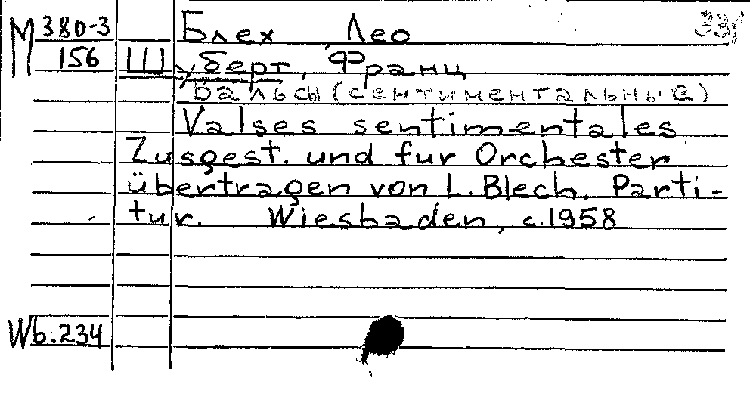 М 380-3 Блех Лео
156 Шуберт, Франц
Вальсы (сентиментальные)
Valses sentimentales
Zusgest. und fur Orchester
übertragen von L. Blech. Parti-
tur. Wiesbaden, c.1958
Wb.234